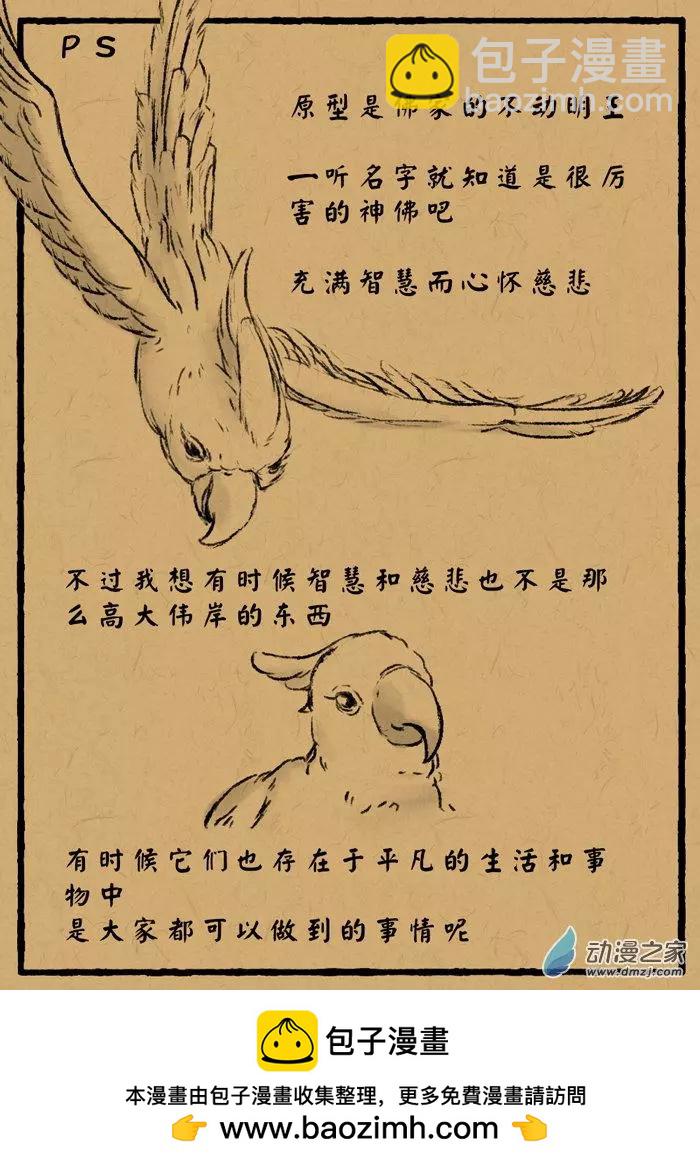 PS
包子漫畫
baozimh.com
原型是佛家的不动明王
一听名字就知道是很厉
害的神佛吧
充满智慧而心怀慈悲
不过我想有时候智慧和慈悲也不是那
么高大伟岸的东西
有时候它们也存在于平凡的生活和事
物中
是大家都可以做到的事情呢
动漫之家
www.dmzj.com
包子漫畫
本漫畫由包子漫畫收集整理，更多免費漫畫請訪問
👉 www.baozimh.com 👈